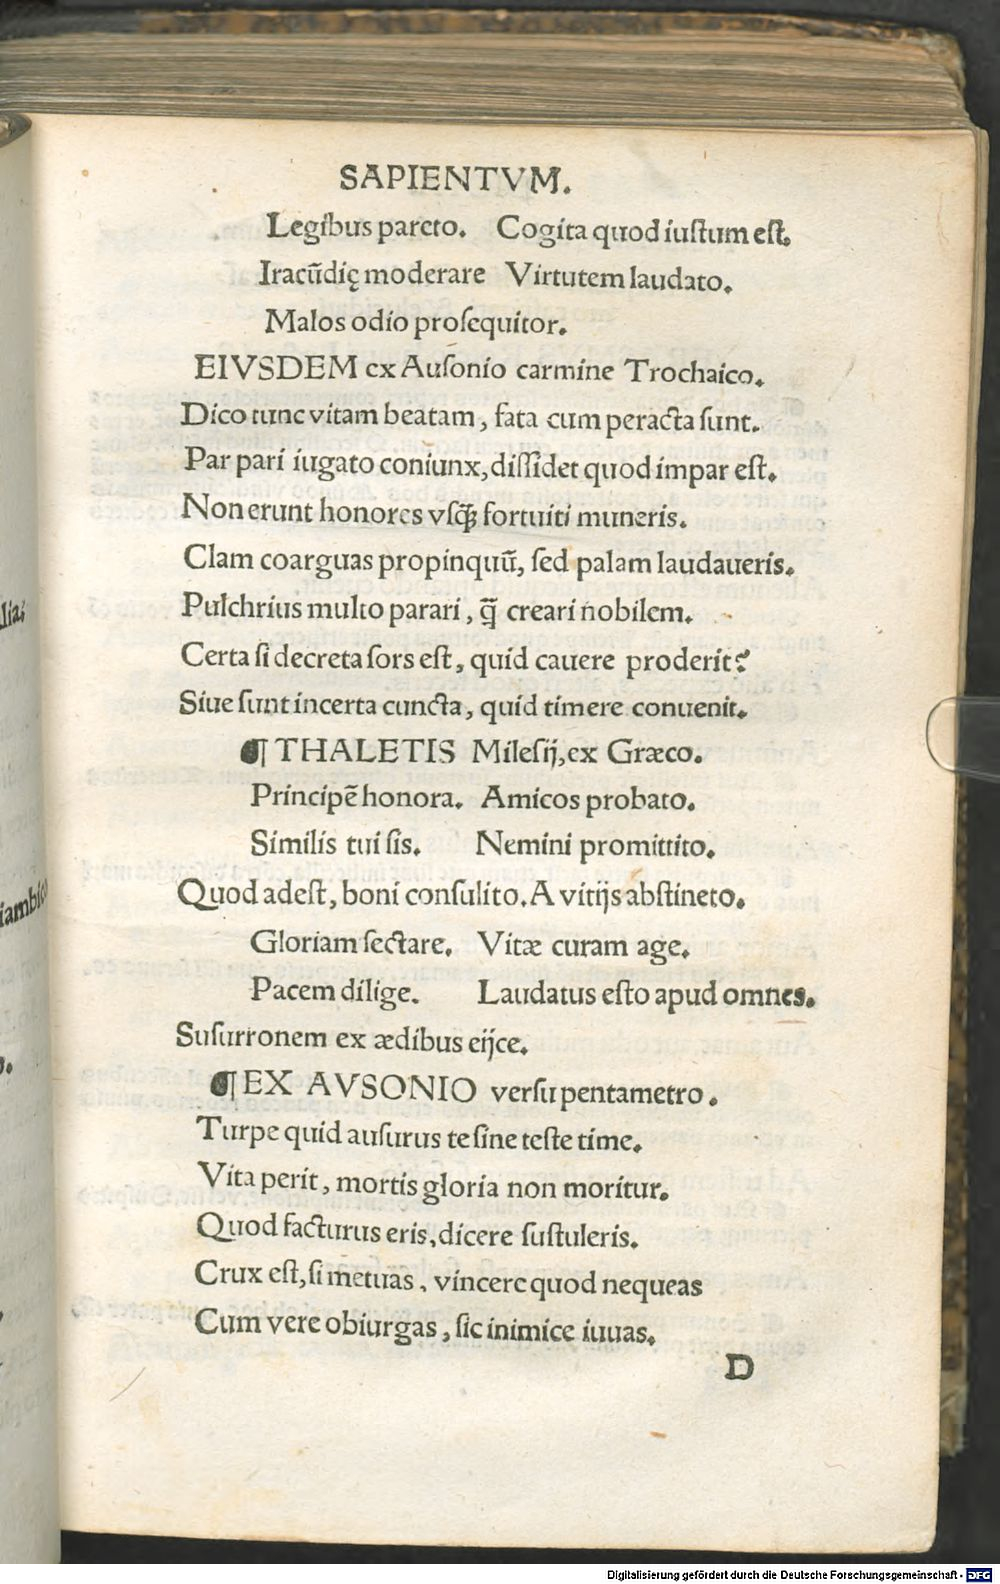 SAPIENTVM.
Legibus pareto. Cogita quod iustum est.
Iracūdię moderare Virtutem laudato.
Malos odio prosequitor.
EIVSDEM ex Ausonio carmine Trochaico.
Dico tunc vitam beatam, fata cum peracta sunt.
Par pari iugato coniunx, dissidet quod impar est.
Non erunt honores vsq̃ fortuiti muneris.
Clam coarguas propinquū, sed palam laudaueris.
Pulchrius multo parari, q̃ creari nobilem.
Certa si decreta sors est, quid cauere proderit?
Siue sunt incerta cuncta, quid timere conuenit.
¶ THALETIS Milesij, ex Græco.
Principē honora. Amicos probato.
Similis tui sis. Nemini promittito.
Quod adest, boni consulito. A vitijs abstineto.
Gloriam sectare. Vitæ curam age.
Pacem dilige. Laudatus esto apud omnes.
Susurronem ex ædibus eijce.
¶ EX AVSONIO versu pentametro.
Turpe quid ausurus te sine teste time.
Vita perit, mortis gloria non moritur.
Quod facturus eris, dicere sustuleris.
Crux est, si metuas, vincere quod nequeas
Cum vere obiurgas, sic inimice iuuas.
D
lia;
iambico
Digitalisierung gefördert durch die Deutsche Forschungsgemeinschaft - DFG